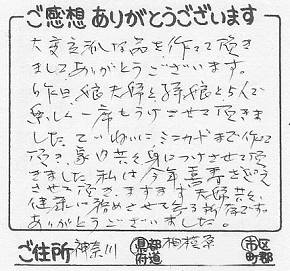 ご感想ありがとうございます
大変立派な品を作って頂き
ましてありがとうございます。
昨日、娘夫婦と孫娘と5人で
楽しく一席もうけさせて頂きま
した。ていねいにミニカードまで作って
頂き、家口共々身につけさせて頂
きました。私は今年喜寿をむかえ
させて頂き、ますます夫婦共々
健康に務めさせて参る所存です。
ありがとうございました。
ご住所 神奈川 都道府県 相模原 市区町郡